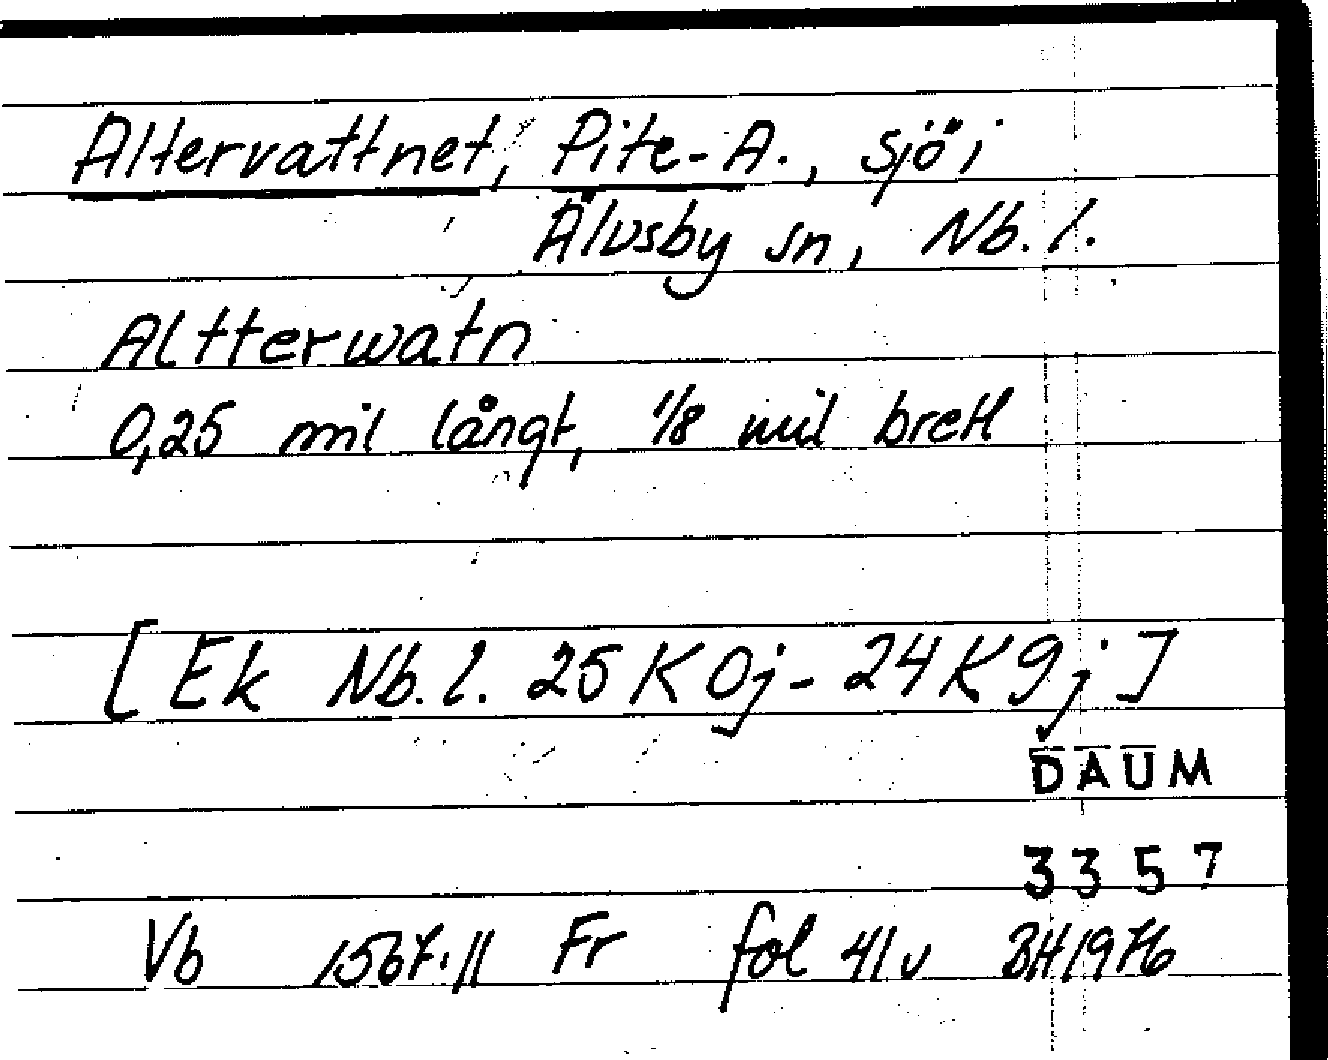 Altervattnet, Pite-A., sjö i
Älvsby sn, Nb. l.
Altterwatn
0,25 mil långt, 1/8 mil brett
[Ek Nb. l. 25 K 0j - 24 K 9j]
DAUM
3357
Vb 1567:11 Fr fol 41v BH 1976